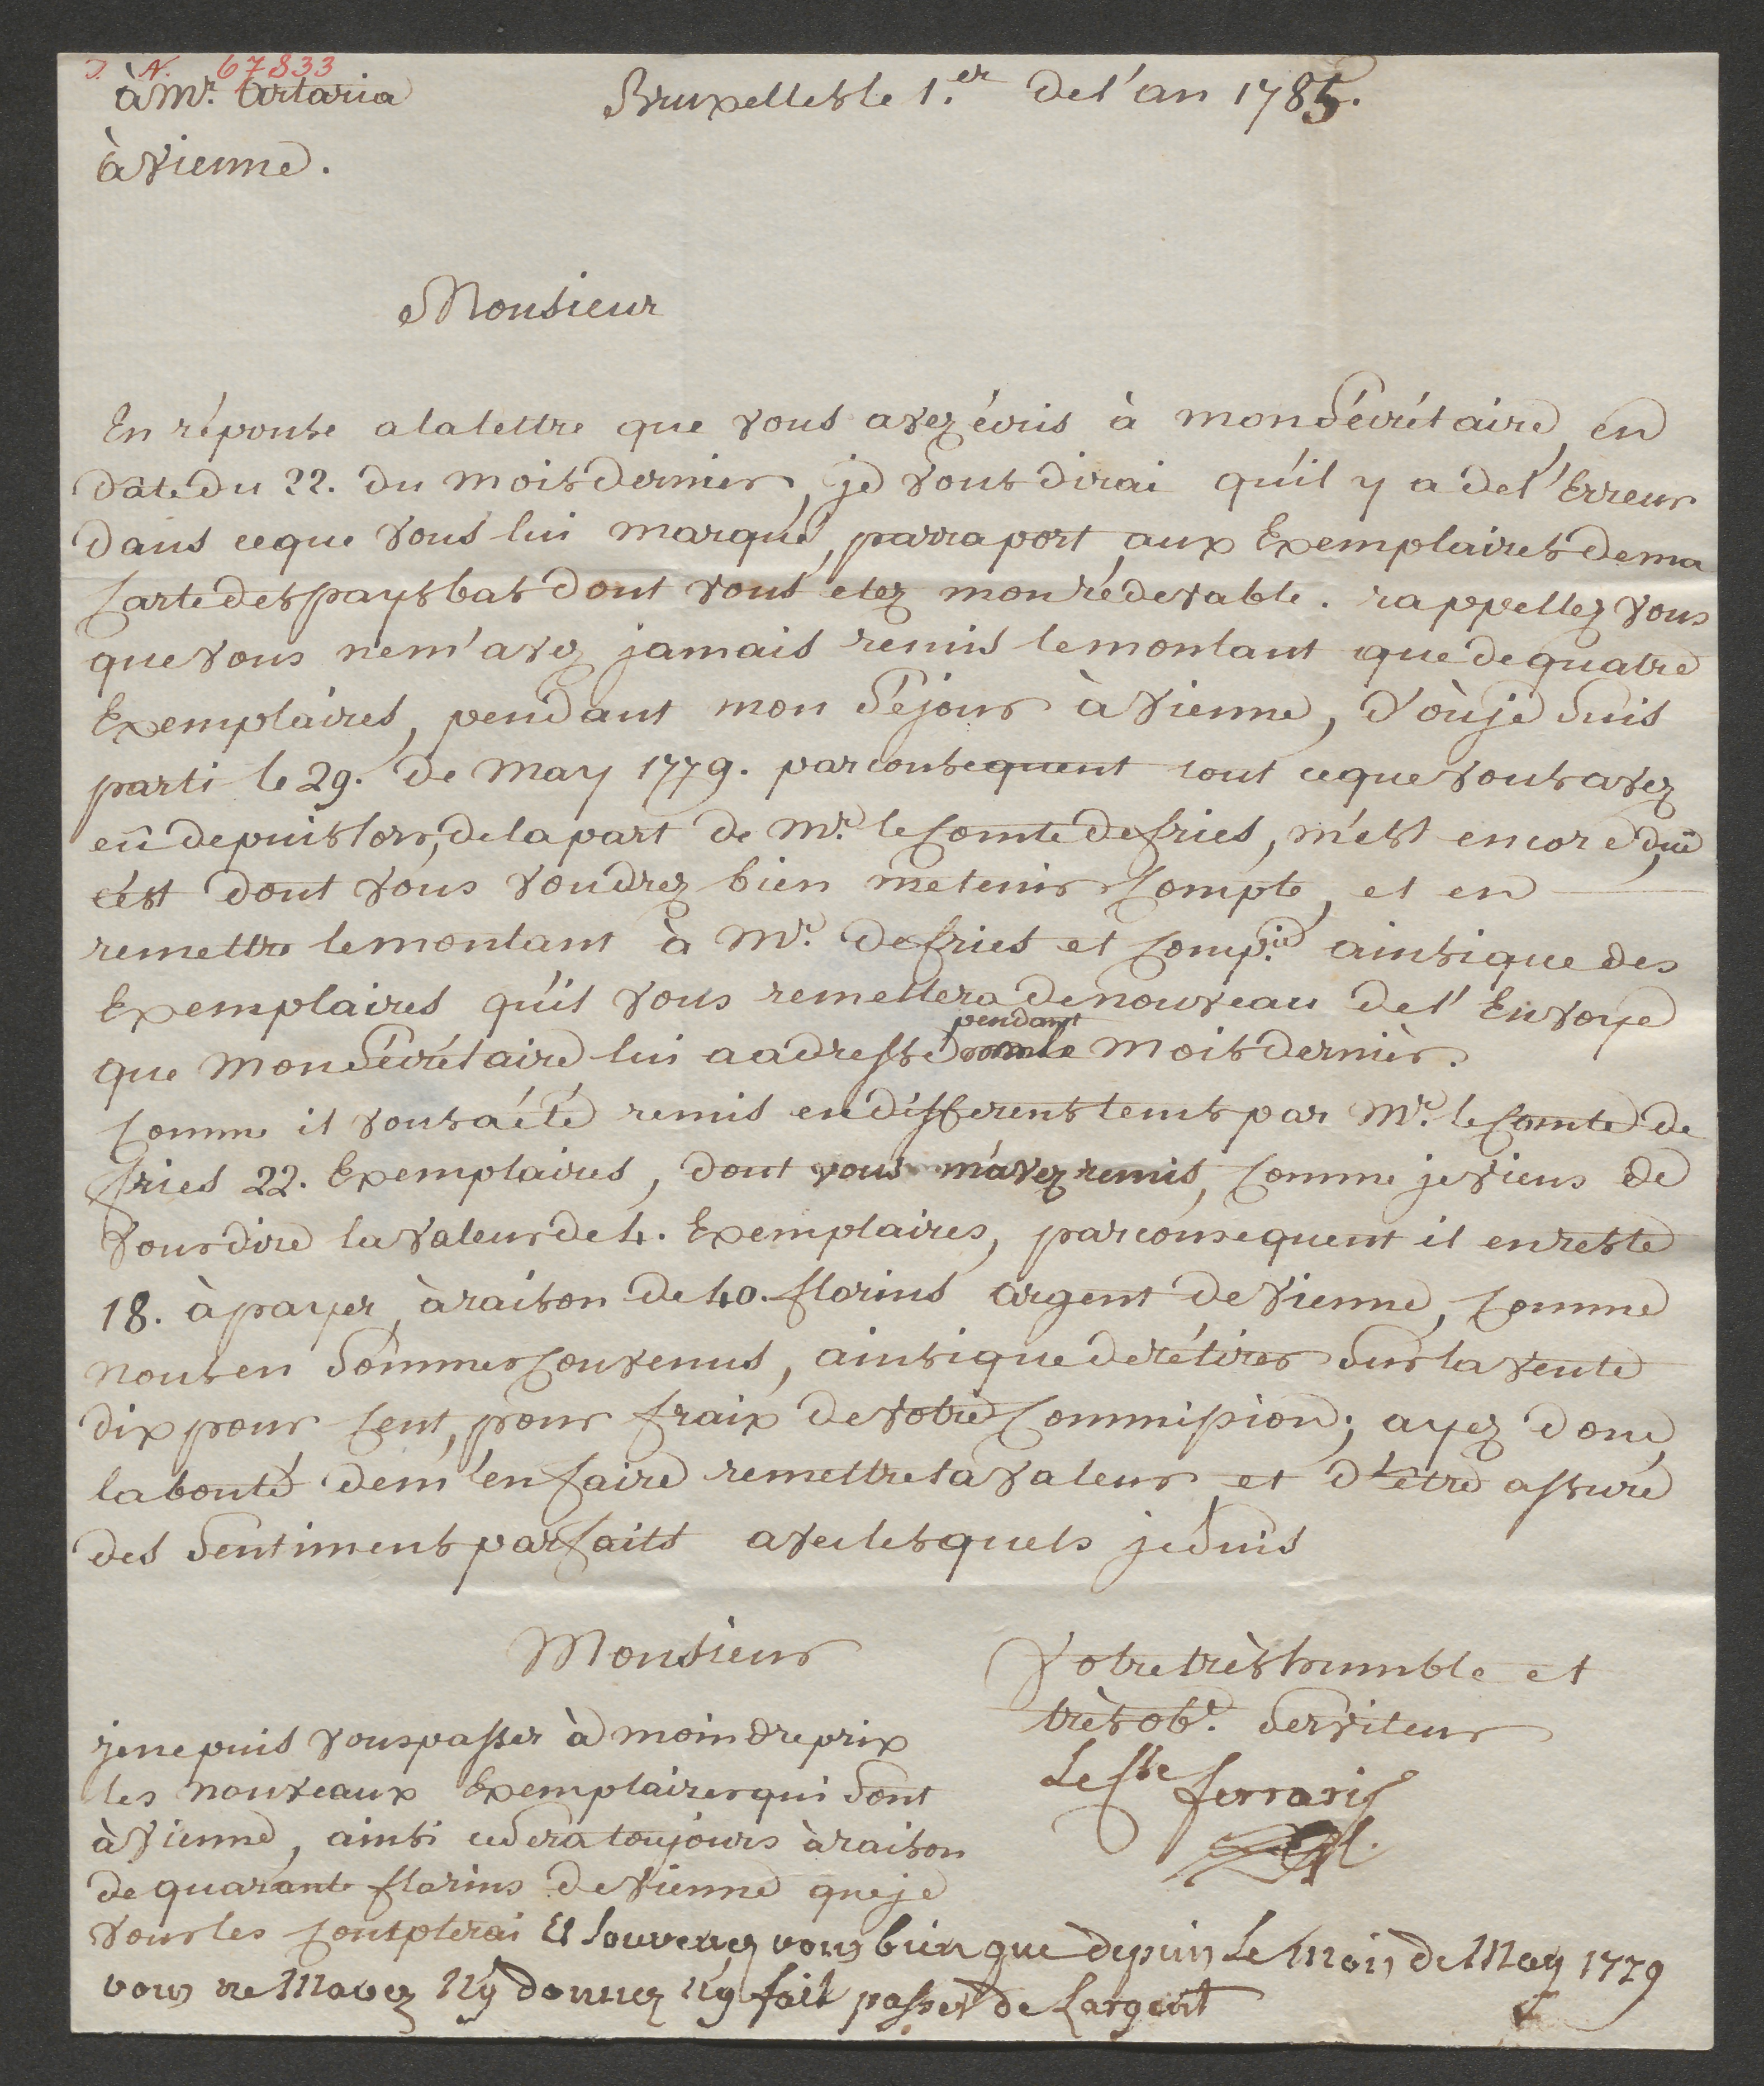 J. N. 67833
à Mr. Artaria
Bruxelles le 1.er de l'an 1785.
à Vienne.
Monsieur
En réponse a la lettre que vous avez écris à mon Sécrétaire en
date du 22. du mois dernier, je vous dirai qu'il y a de l'Erreur
dans ce que vous lui marqué, par raport aux Exemplaires de ma
Carte des pays bas dont vous etez mon rédevable. rappellez vous
que vous ne m'avez jamais remis le montant que de quatre
Exemplaires, pendant mon Séjour à Vienne, d'où je Suis
parti le 29. de May 1779. par consequent tout ce que vous avez
eû depuis lors, de la part de Mr. le Comte de fries, m'est encore dûe,
c'est dont vous voudrez bien me tenir Compte, et en
remettre le montant à Mr. de fries et Comp.ie ainsi que des
Exemplaires qu'il vous remettera de nouveau de l'Envoye
que mon Sécrétaire lui a adressé pendant le mois dernièr.
Comme il vous a été remis en differents tems par Mr. le Comte de
fries 22. Exemplaires, dont vous m'avez remis, Comme je viens de
vous dire la valeur de 4. Exemplaires, par consequent il en reste
18. à payer à raison de 40. florins argent de Vienne, Comme
nous en Sommes Convenus, ainsi que de rétirer Sur la vente
dix pour Cent, pour fraix de votre Commission; ayez donc
la bonté de m'en faire remettre la valeur et d'être assuré
des Sentiments parfaits avec lesquels je Suis
Monsieur
Votre très humble et
très obt. Serviteur
Le Cte ferraris
je ne puis vous passer à moindre prix
les nouveaux Exemplaires qui Sont
à Vienne, ainsi ce Sera toujours à raison
de quarante florins de Vienne que je
vous les Comptérai Et Souvenez vous bien que depuis Le Mois de May 1779
vous ne Mavez Ny donnez Ny fait passer de Largent